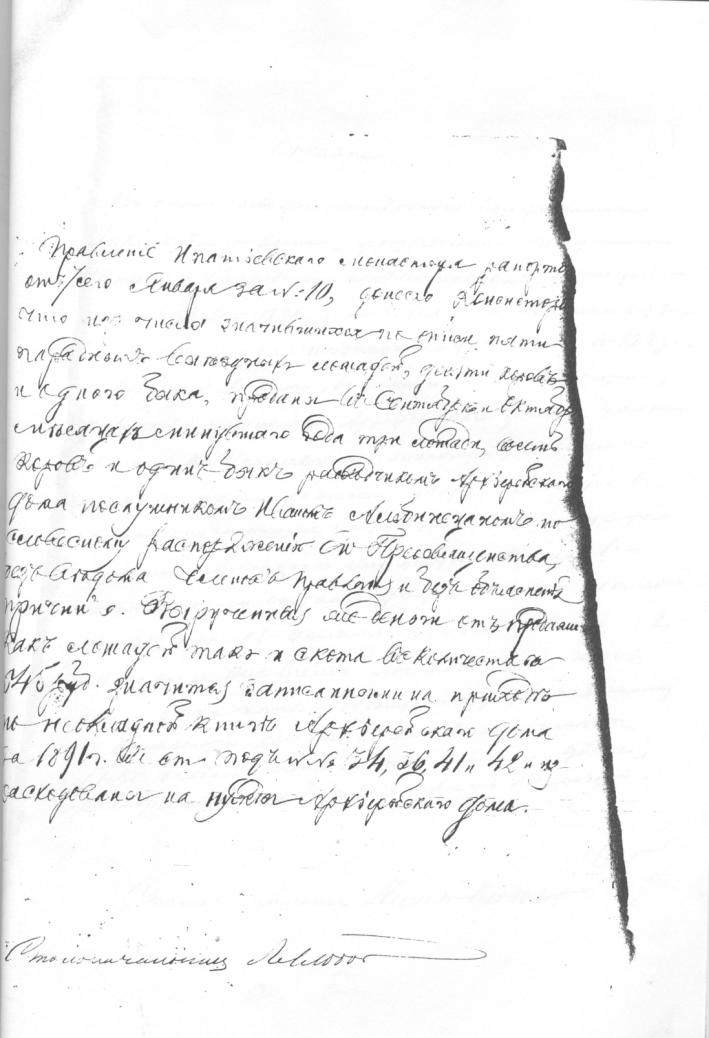 Правленіе Ипатіевскаго монастыря рапорто
отъ сего Января за №: 10, донесло Консистор
что изъ числа значившихся по описи пяти
выѣздныхъ лошадей, десяти коровъ
и одного быка, проданы въ Сентябрѣ и Октябр
мѣсяцахъ минувшаго года три лошади, шесть
коровъ и одинъ быкъ Архіерейскаго
дома послушникомъ по
словесному распоряженію Его Преосвященства,
безъ вѣдома членовъ Правленія и безъ
причины. Вырученныя же деньги отъ продажи
какъ лошадей такъ и скота въ количествѣ
руб. значатся записанными на приходъ
по неокладной книгѣ Архіерейскаго дома
за 1891 г. ст. подъ №№ 34, 36, 41 и 42 и из-
расходованы на нужды Архіерейскаго дома.
Столоначальникъ